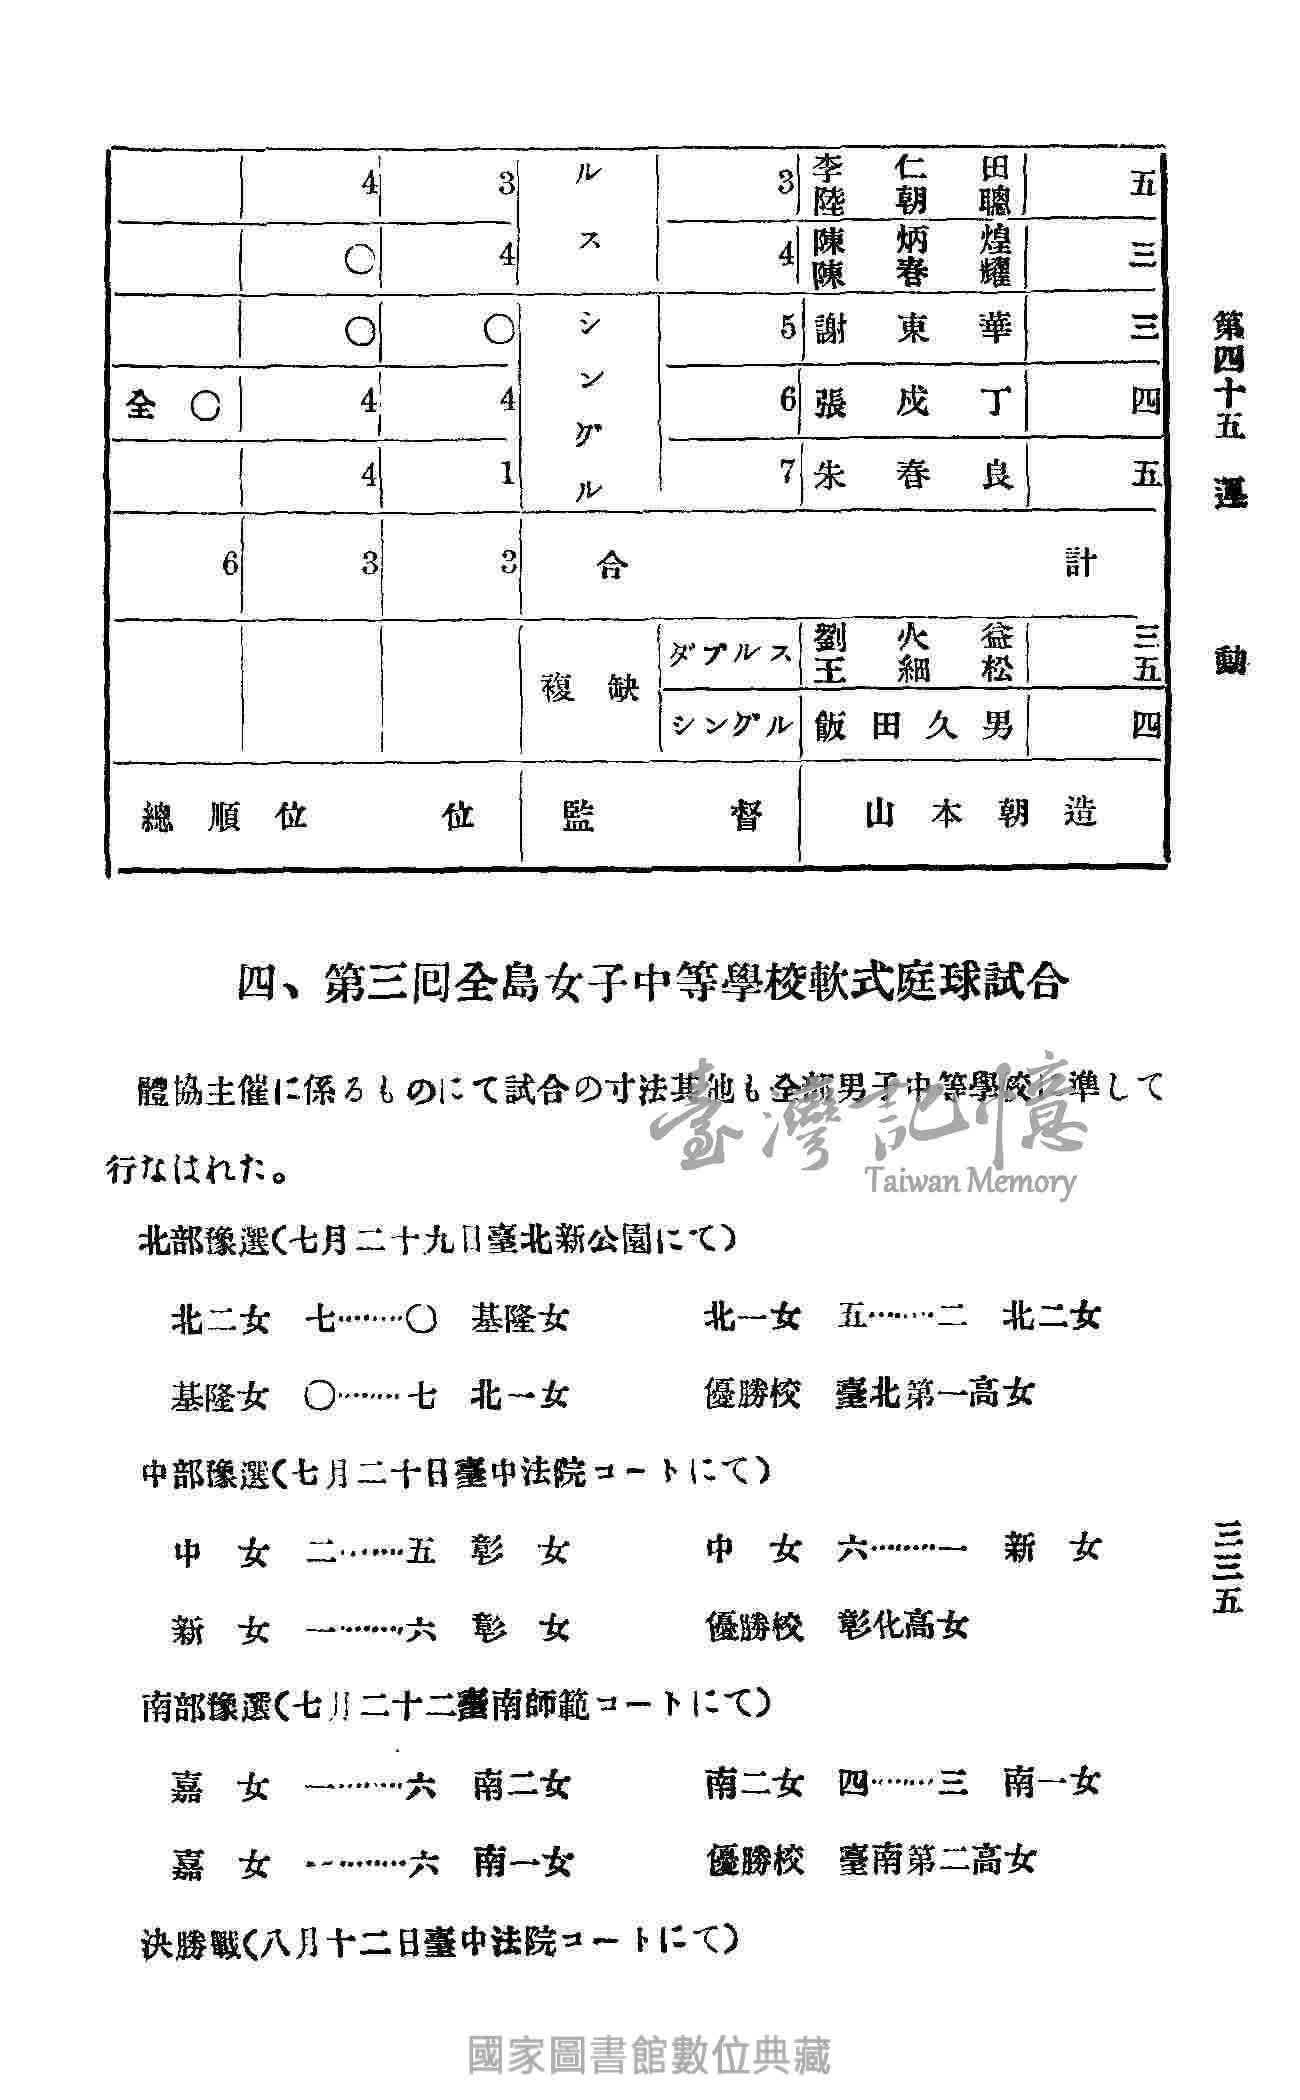 4 3 ル 3 李仁田 五
陸朝聰
〇 4 ス 4 陳炳煌 三
陳春耀
〇 〇 シ 5 謝東華 三
仝〇 4 4 ング 6 張戍丁 四
4 1 ル 7 朱春良 五
6 3 3 合 計
複缺 ダブルス 劉火益 三
王細松 五
シングル 飯田久男 四
總順位 位 監督 山本朝造
第四十五 運 動
四、第三囘全島女子中等學校軟式庭球試合
體協主催に係るものにて試合の寸法其他も全部男子中等學校に準して
行なはれた。
北部豫選(七月二十九日臺北新公園にて)
北二女 七……〇 基隆女 北一女 五……二 北二女
基隆女 〇……七 北一女 優勝校 臺北第一高女
中部豫選(七月二十日臺中法院コートにて)
中女 二……五 彰女 中女 六……一 新女
新女 一……六 彰女 優勝校 彰化高女
南部豫選(七月二十二臺南師範コートにて)
嘉女 一……六 南二女 南二女 四……三 南一女
嘉女 一……六 南一女 優勝校 臺南第二高女
決勝戰(八月十二日臺中法院コートにて)
三三五
臺灣記憶
Taiwan Memory
國家圖書館數位典藏